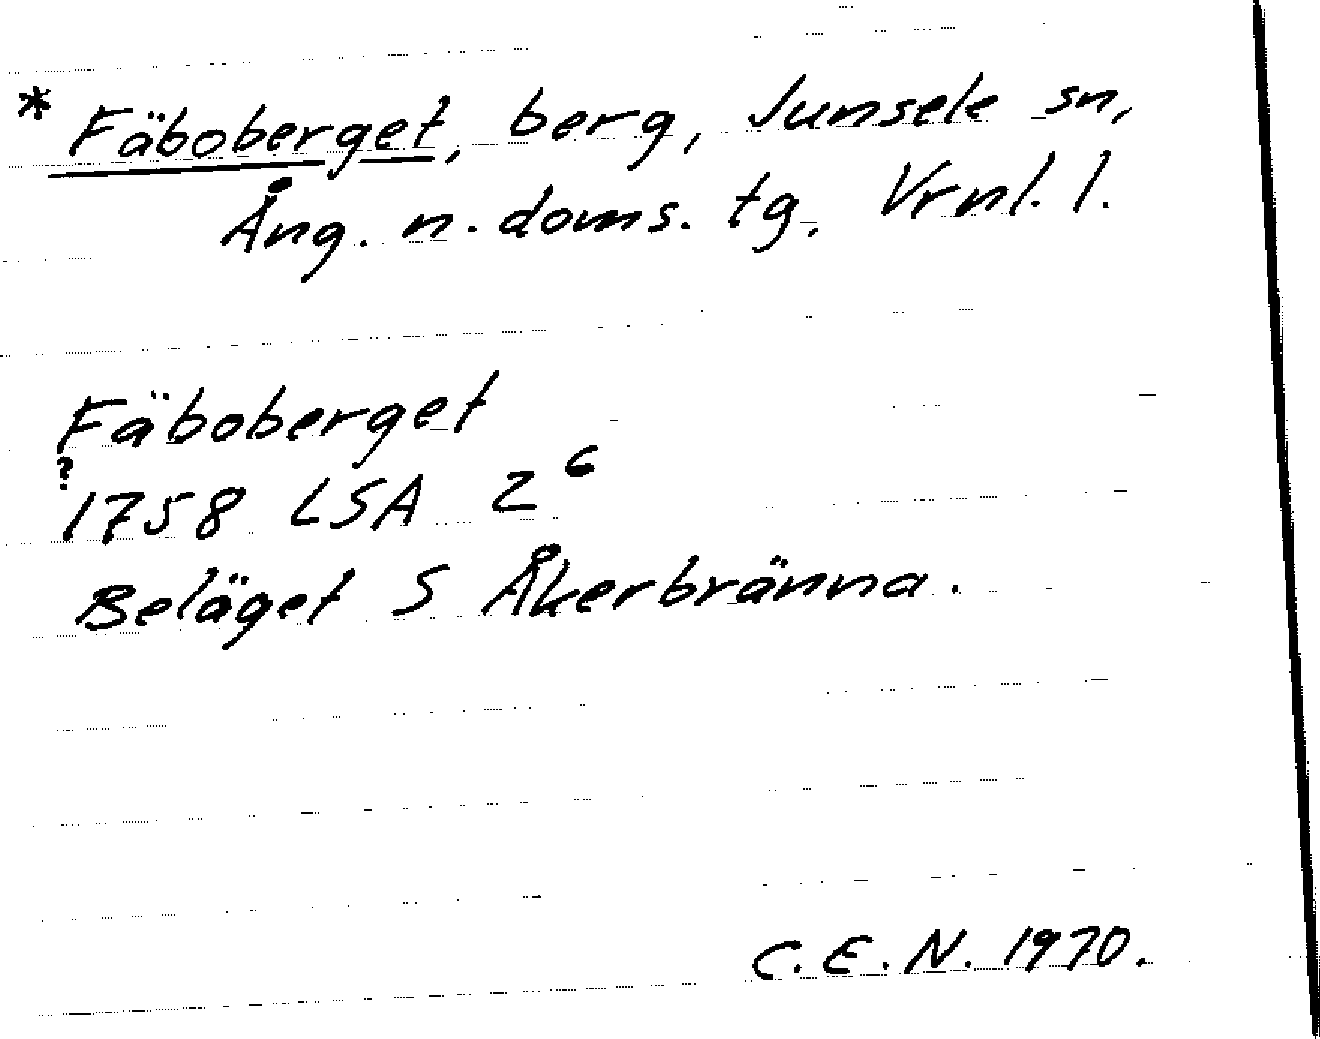 * Fäboberget, berg, Junsele sn,
Ång. n. doms. tg. Vrnl. l.
Fäboberget
?
1758 LSA 2⁶
Beläget S Åkerbränna.
C. E. N. 1970.